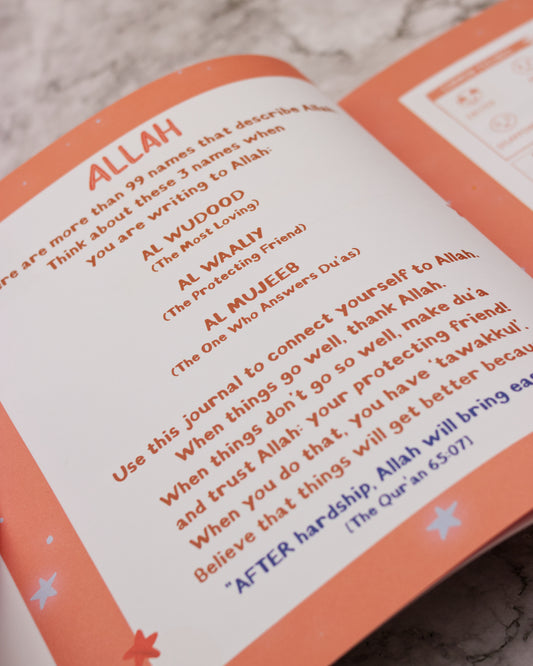 ALLAH
ere are more than 99 names that describe Allah
Think about these 3 names when
you are writing to Allah:
AL WUDOOD
(The Most Loving)
AL WAALIY
(The Protecting Friend)
AL MUJEEB
(The One Who Answers Du'as)
Use this journal to connect yourself to Allah.
When things go well, thank Allah.
When things don't go so well, make du'a
and trust Allah: your protecting friend!
When you do that, you have 'tawakkul'.
Believe that things will get better becau
"AFTER hardship, Allah will bring eas
[The Qur'an 65:07]